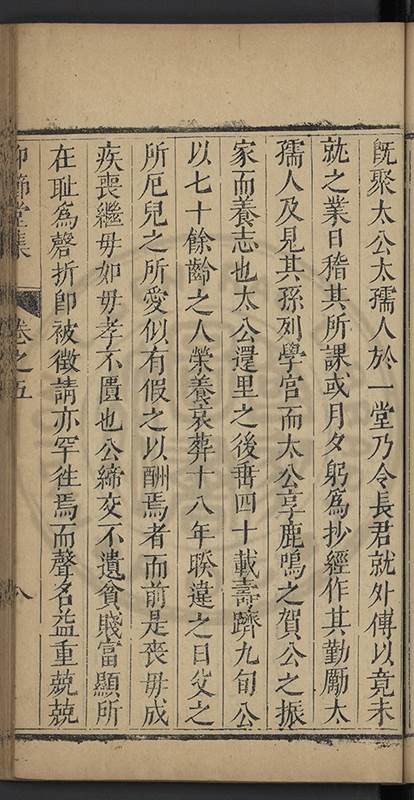 既聚太公太孺人於一堂乃令長君就外傅以竟未
就之業日稽其所課或月夕躬為抄經作其勤勵太
孺人及見其孫列學官而太公享鹿鳴之賀公之振
家而養志也太公還里之後垂四十載壽躋九旬公
以七十餘齡之人榮養哀葬十八年睽違之日父之
所厄兒之所愛似有假之以酬焉者而前是喪毋成
疾喪繼毋如毋孝不匱也公締交不遺貧賤富顯所
在耻為磬折卽被徵請亦罕徃焉而聲名益重兢兢
仰節堂集
卷之五
八